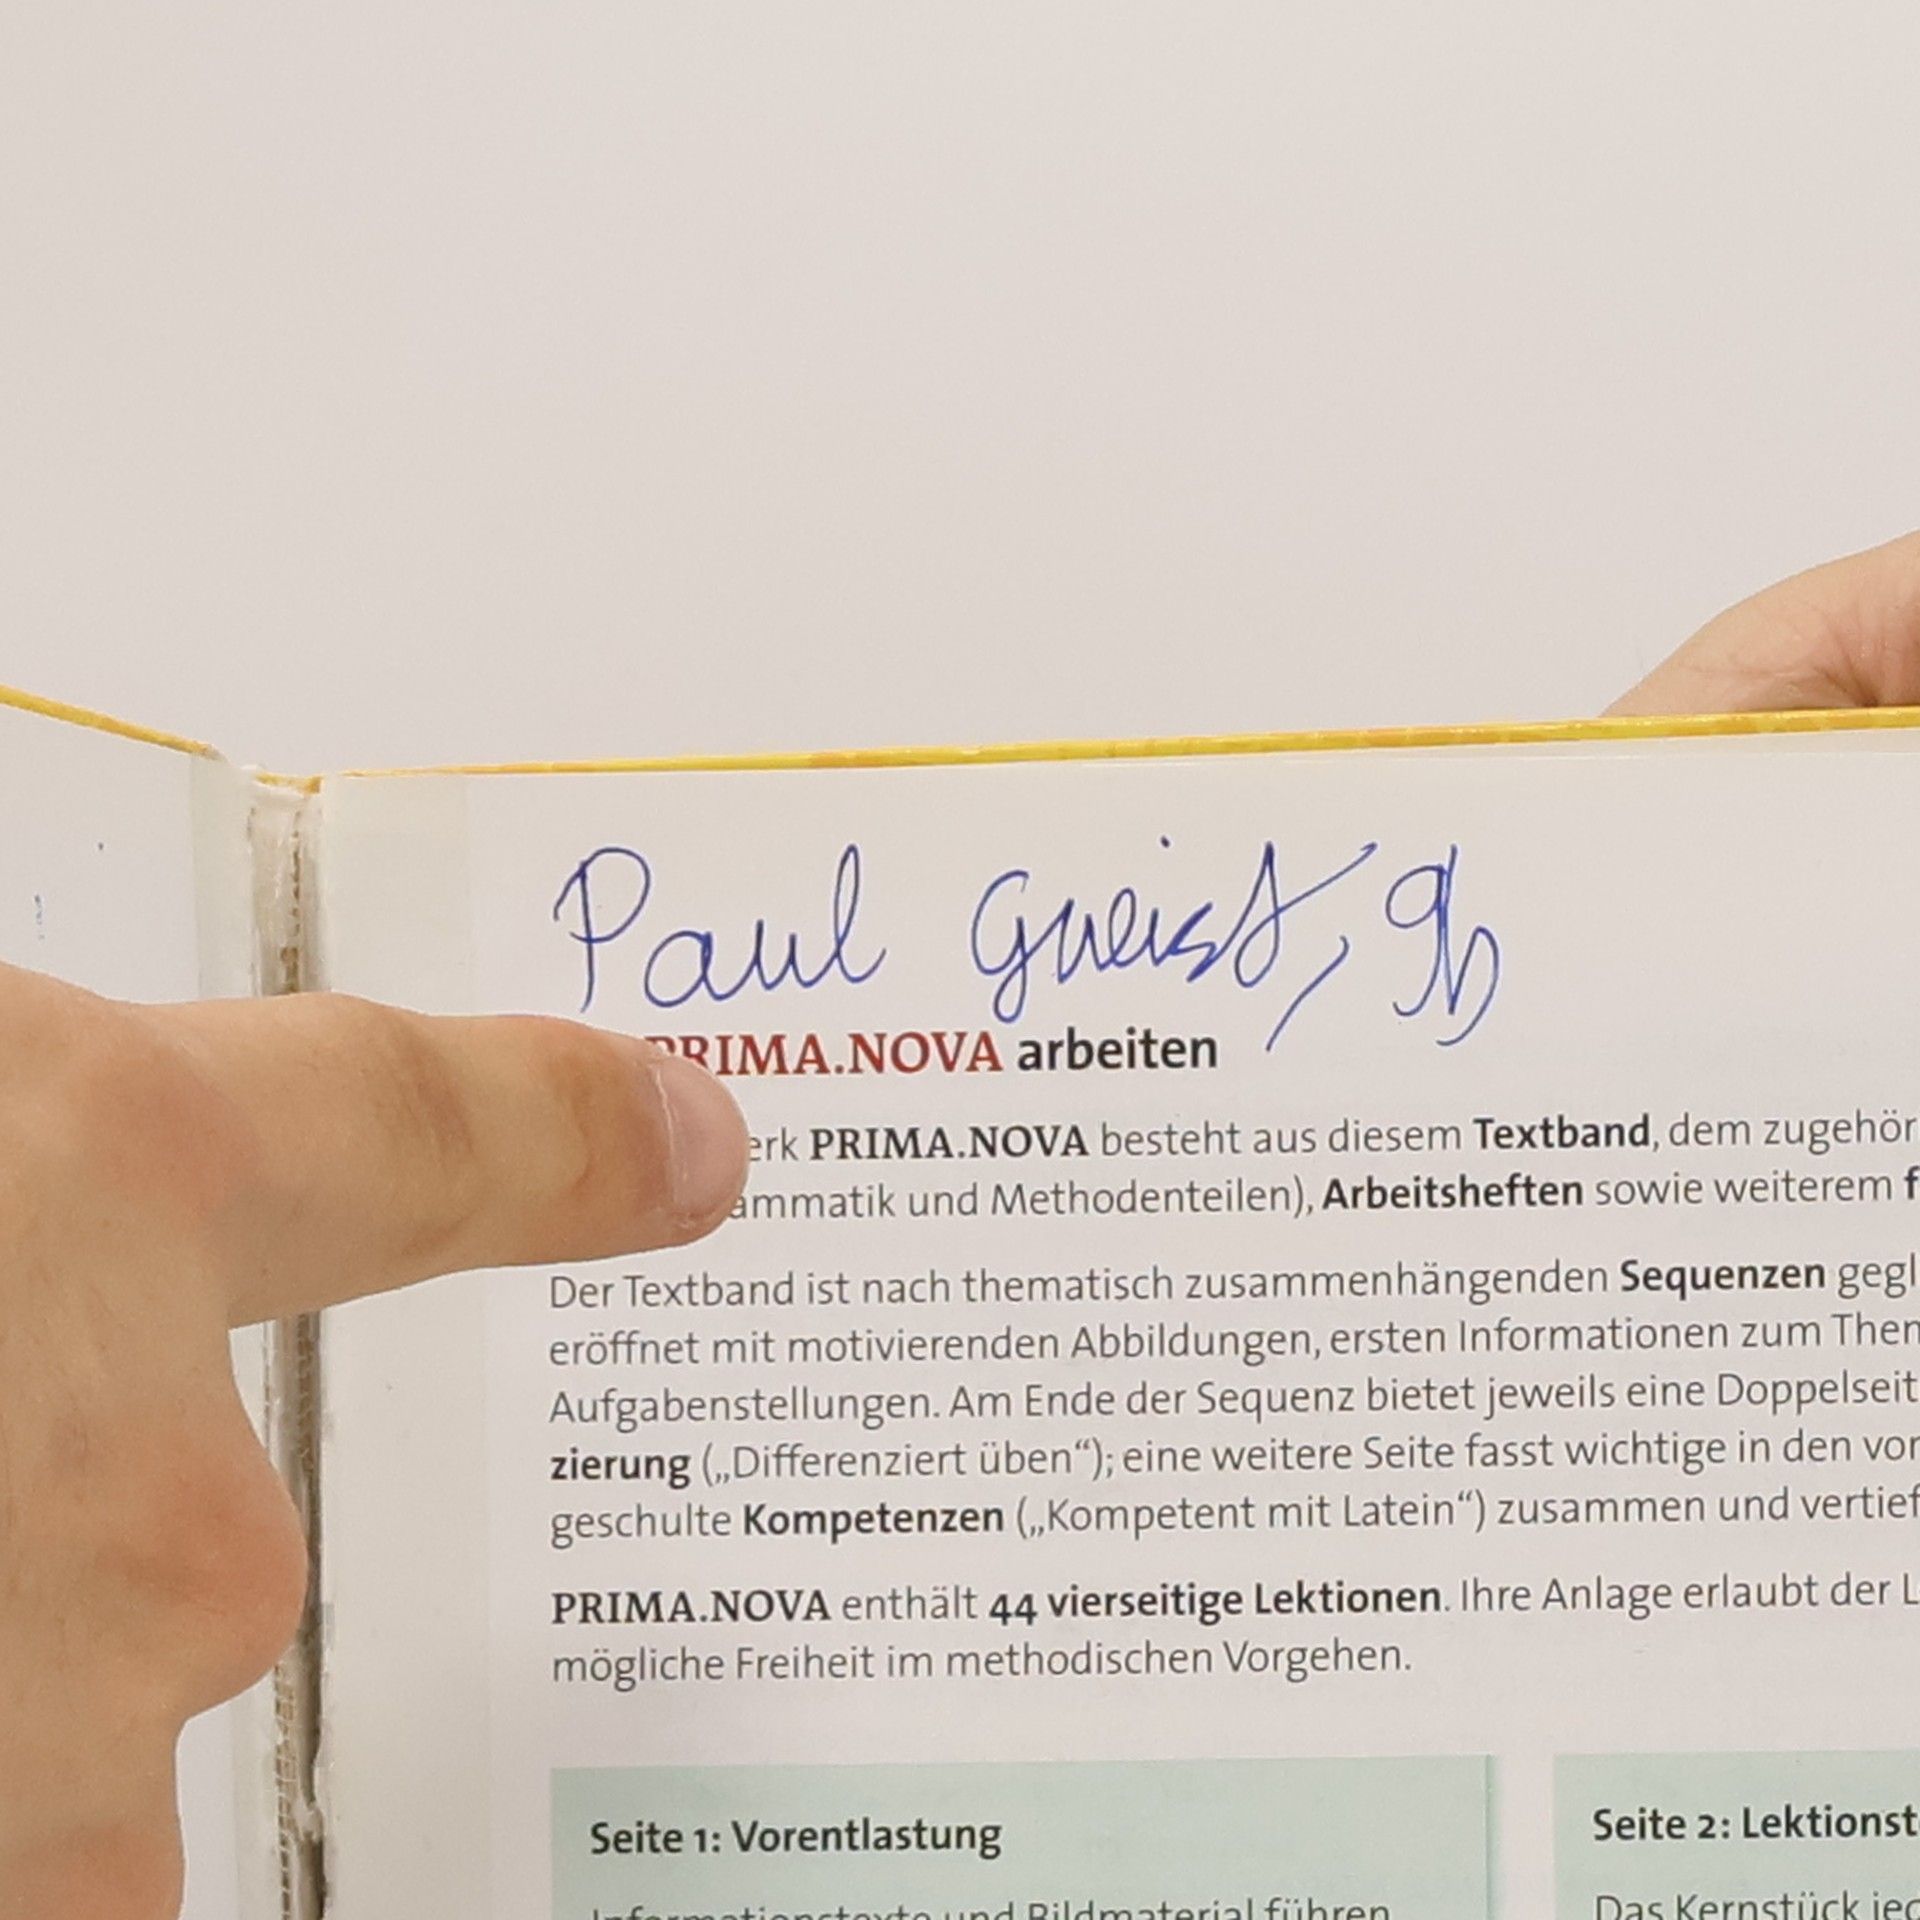 Paul Gneist, 9b
PRIMA.NOVA arbeiten
PRIMA.NOVA besteht aus diesem Textband, dem zugehör
und Methodenteilen), Arbeitsheften sowie weiterem f
Der Textband ist nach thematisch zusammenhängenden Sequenzen gegl
eröffnet mit motivierenden Abbildungen, ersten Informationen zum Them
Aufgabenstellungen. Am Ende der Sequenz bietet jeweils eine Doppelseit
zierung („Differenziert üben“); eine weitere Seite fasst wichtige in den vor
geschulte Kompetenzen („Kompetent mit Latein“) zusammen und vertief
PRIMA.NOVA enthält 44 vierseitige Lektionen. Ihre Anlage erlaubt der L
mögliche Freiheit im methodischen Vorgehen.
Seite 1: Vorentlastung
Informationstexte und Bildmaterial führen
Seite 2: Lektionst
Das Kernstück jed